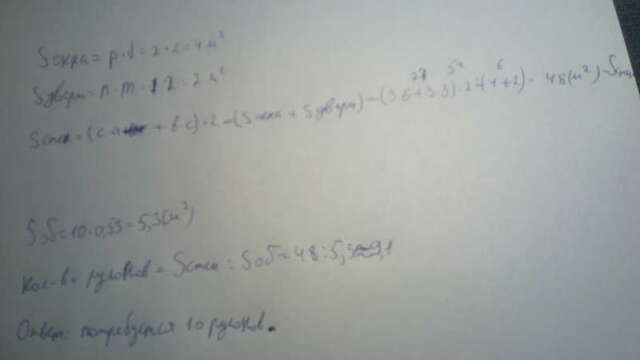 Sокна = p·d = 2·2 = 4 м²
Sдвери = n·m = 1·2 = 2 м²
Sстен = (c·a + b·c)·2 - (Sокна + Sдвери) = (3·6 + 3·3)·2 - (4 + 2) = 48 (м²) - Sстен
27 54 6
Sоб = 10·0,53 = 5,3 (м²)
Кол-во рулонов = Sстен : Sоб = 48 : 5,3 ≈ 9,1
Ответ: потребуется 10 рулонов.